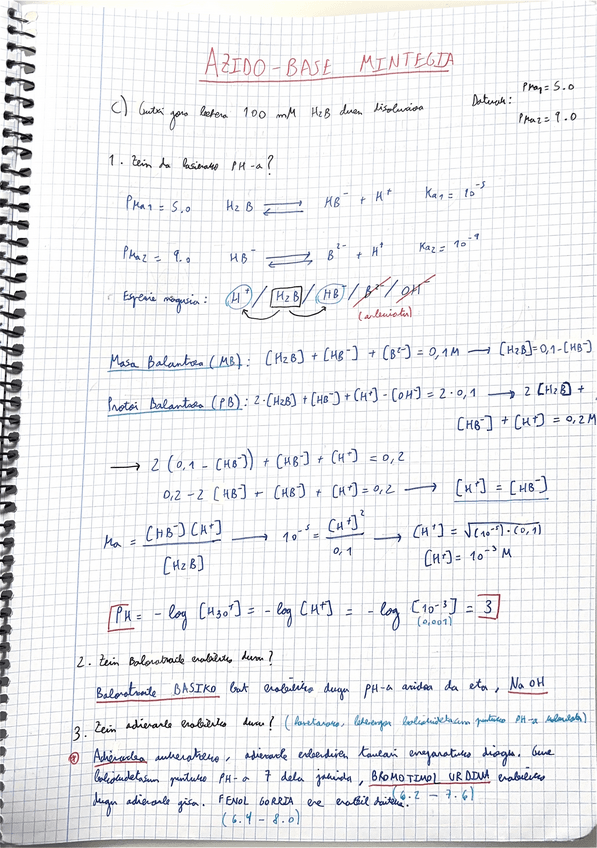 AZIDO-BASE MINTEGIA
C) 100 mM H2B duen disoluzioa
Datuak: PKa1 = 5.0
PKa2 = 9.0
1. Zein da hasierako PH-a?
PKa1 = 5,0 H2B ⇌ HB⁻ + H⁺ Ka1 = 10⁻⁵
PKa2 = 9.0 HB⁻ ⇌ B²⁻ + H⁺ Ka2 = 10⁻⁹
Espezie nagusia: H⁺ / H2B / HB⁻ / B²⁻ / OH⁻
Masa Balantzea (MB): [H2B] + [HB⁻] + [B²⁻] = 0,1M → [H2B]=0,1-[HB⁻]
Protoi Balantzea (PB): 2·[H2B]+[HB⁻]+[H⁺]-[OH⁻] = 2·0,1 → 2[H2B] +
[HB⁻] + [H⁺] = 0,2M
→ 2(0,1 - [HB⁻]) + [HB⁻] + [H⁺] = 0,2
0,2 - 2[HB⁻] + [HB⁻] + [H⁺] = 0,2 → [H⁺] = [HB⁻]
Ka = [HB⁻][H⁺] / [H2B] → 10⁻⁵ = [H⁺]² / 0,1 → [H⁺] = √(10⁻⁵)·(0,1)
[H⁺] = 10⁻³ M
PH = -log [H3O⁺] = -log [H⁺] = -log [10⁻³] = 3
(0,001)
2. Zein Baloratzaile erabiliko duzu?
Baloratzaile BASIKO bat erabiliko dugu PH-a azidoa da eta, NaOH
3. Zein adierazle erabiliko duzu? (Horretarako, lehenengo baliokidetasun puntuko PH-a kalkulatu)
Adierazlea aukeratzeko, adierazle ezberdinen taulari erreparatuko diogu. Gure
baliokidetasun puntuko PH-a 7 dela jakinda, BROMOTIMOL URDINA erabiliko
dugu adierazle gisa. FENOL GORRIA ere erabil daiteke. (6.2 - 7.6)
(6.4 - 8.0)